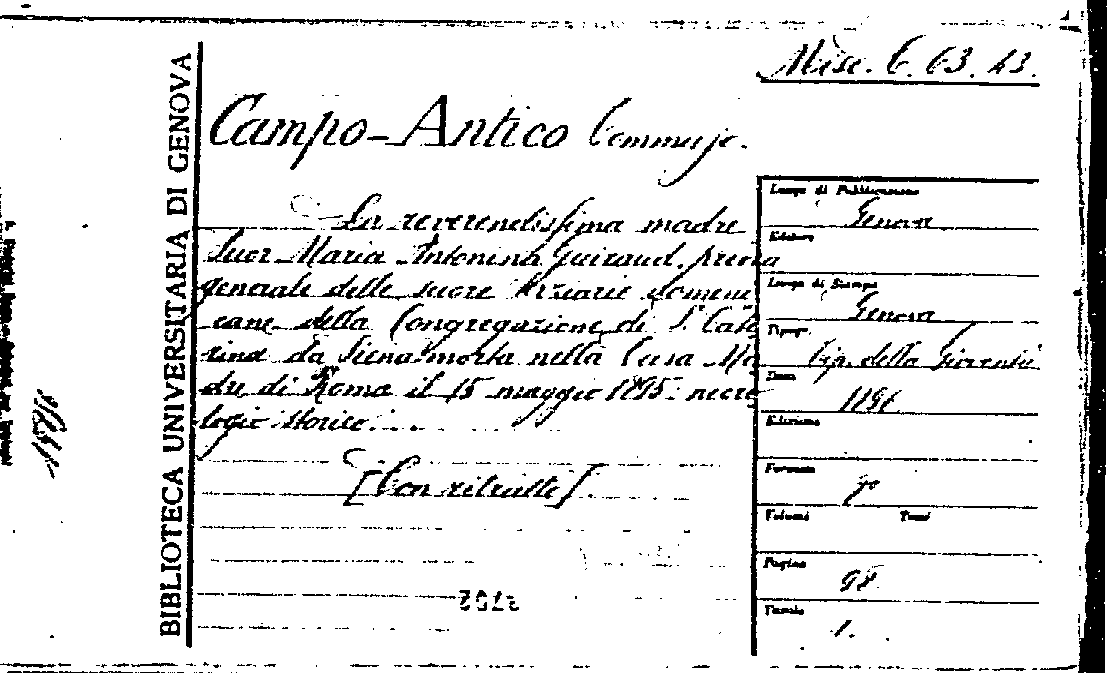 BIBLIOTECA UNIVERSITARIA DI GENOVA
Misc. C. 63. 43.
Campo-Antico Tommaso.
La reverendissima madre
Suor Maria Antonina Guiraud, priora
generale delle suore terziarie domeni
cane della Congregazione di S. Cate
rina da Siena morta nella Casa Ma
dre di Roma il 15 maggio 1895: necro
logio storico.
[Con ritratto].
Luogo di Pubblicazione
Genova
Editore
Luogo di Stampa
Genova
Tipogr.
Tip. della Gioventù
Data
Edizione
Formato
Volumi Tomi
Pagine
98
Tavole
1.